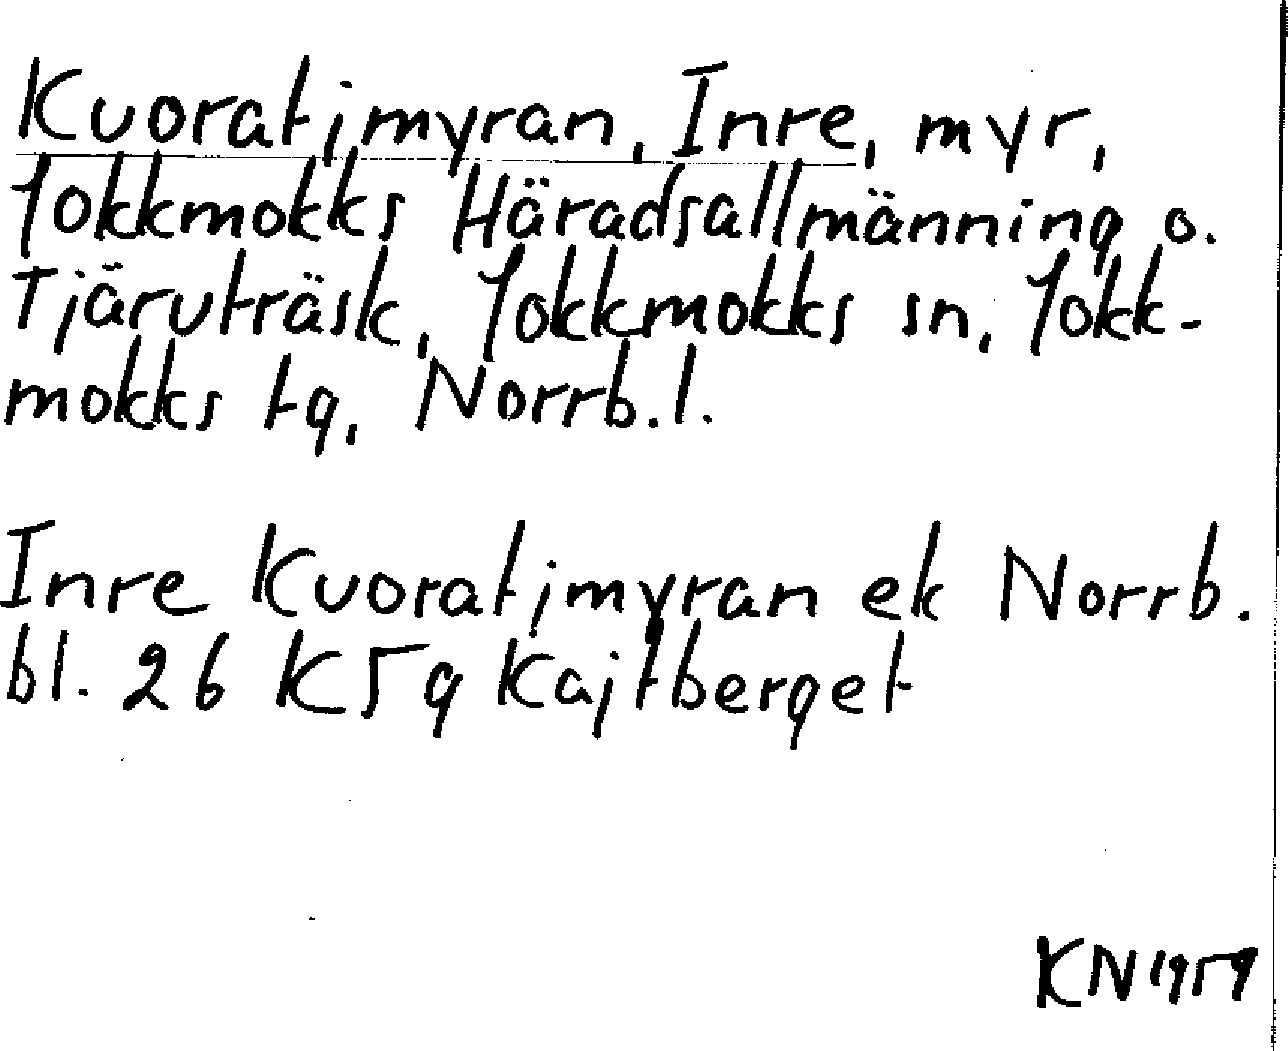 Kuoratjmyran, Inre, myr,
Jokkmokks Häradsallmänning o.
Tjäruträsk, Jokkmokks sn, Jokk-
mokks tg, Norrb.l.
Inre Kuoratjmyran ek Norrb.
bl. 26 K5g Kajtberget
KN 1959